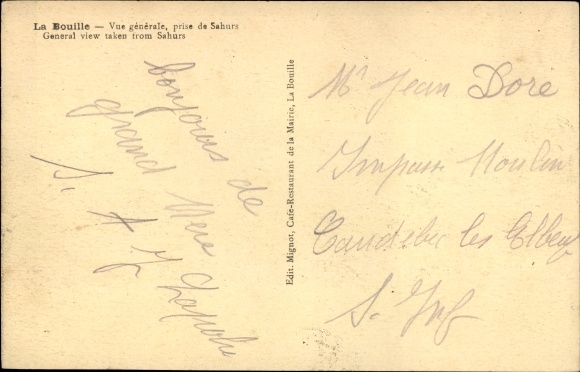 La Bouille — Vue générale, prise de Sahurs
General view taken from Sahurs
bonjours de
grand Mere
Edit. Mignot, Café-Restaurant de la Mairie, La Bouille
Mr Jean Doré
Impasse Moulin
Caudebec les Elbeuf
S. Inf